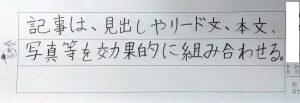 記事は、見出しやリード文、本文、
写真等を効果的に組み合わせる。